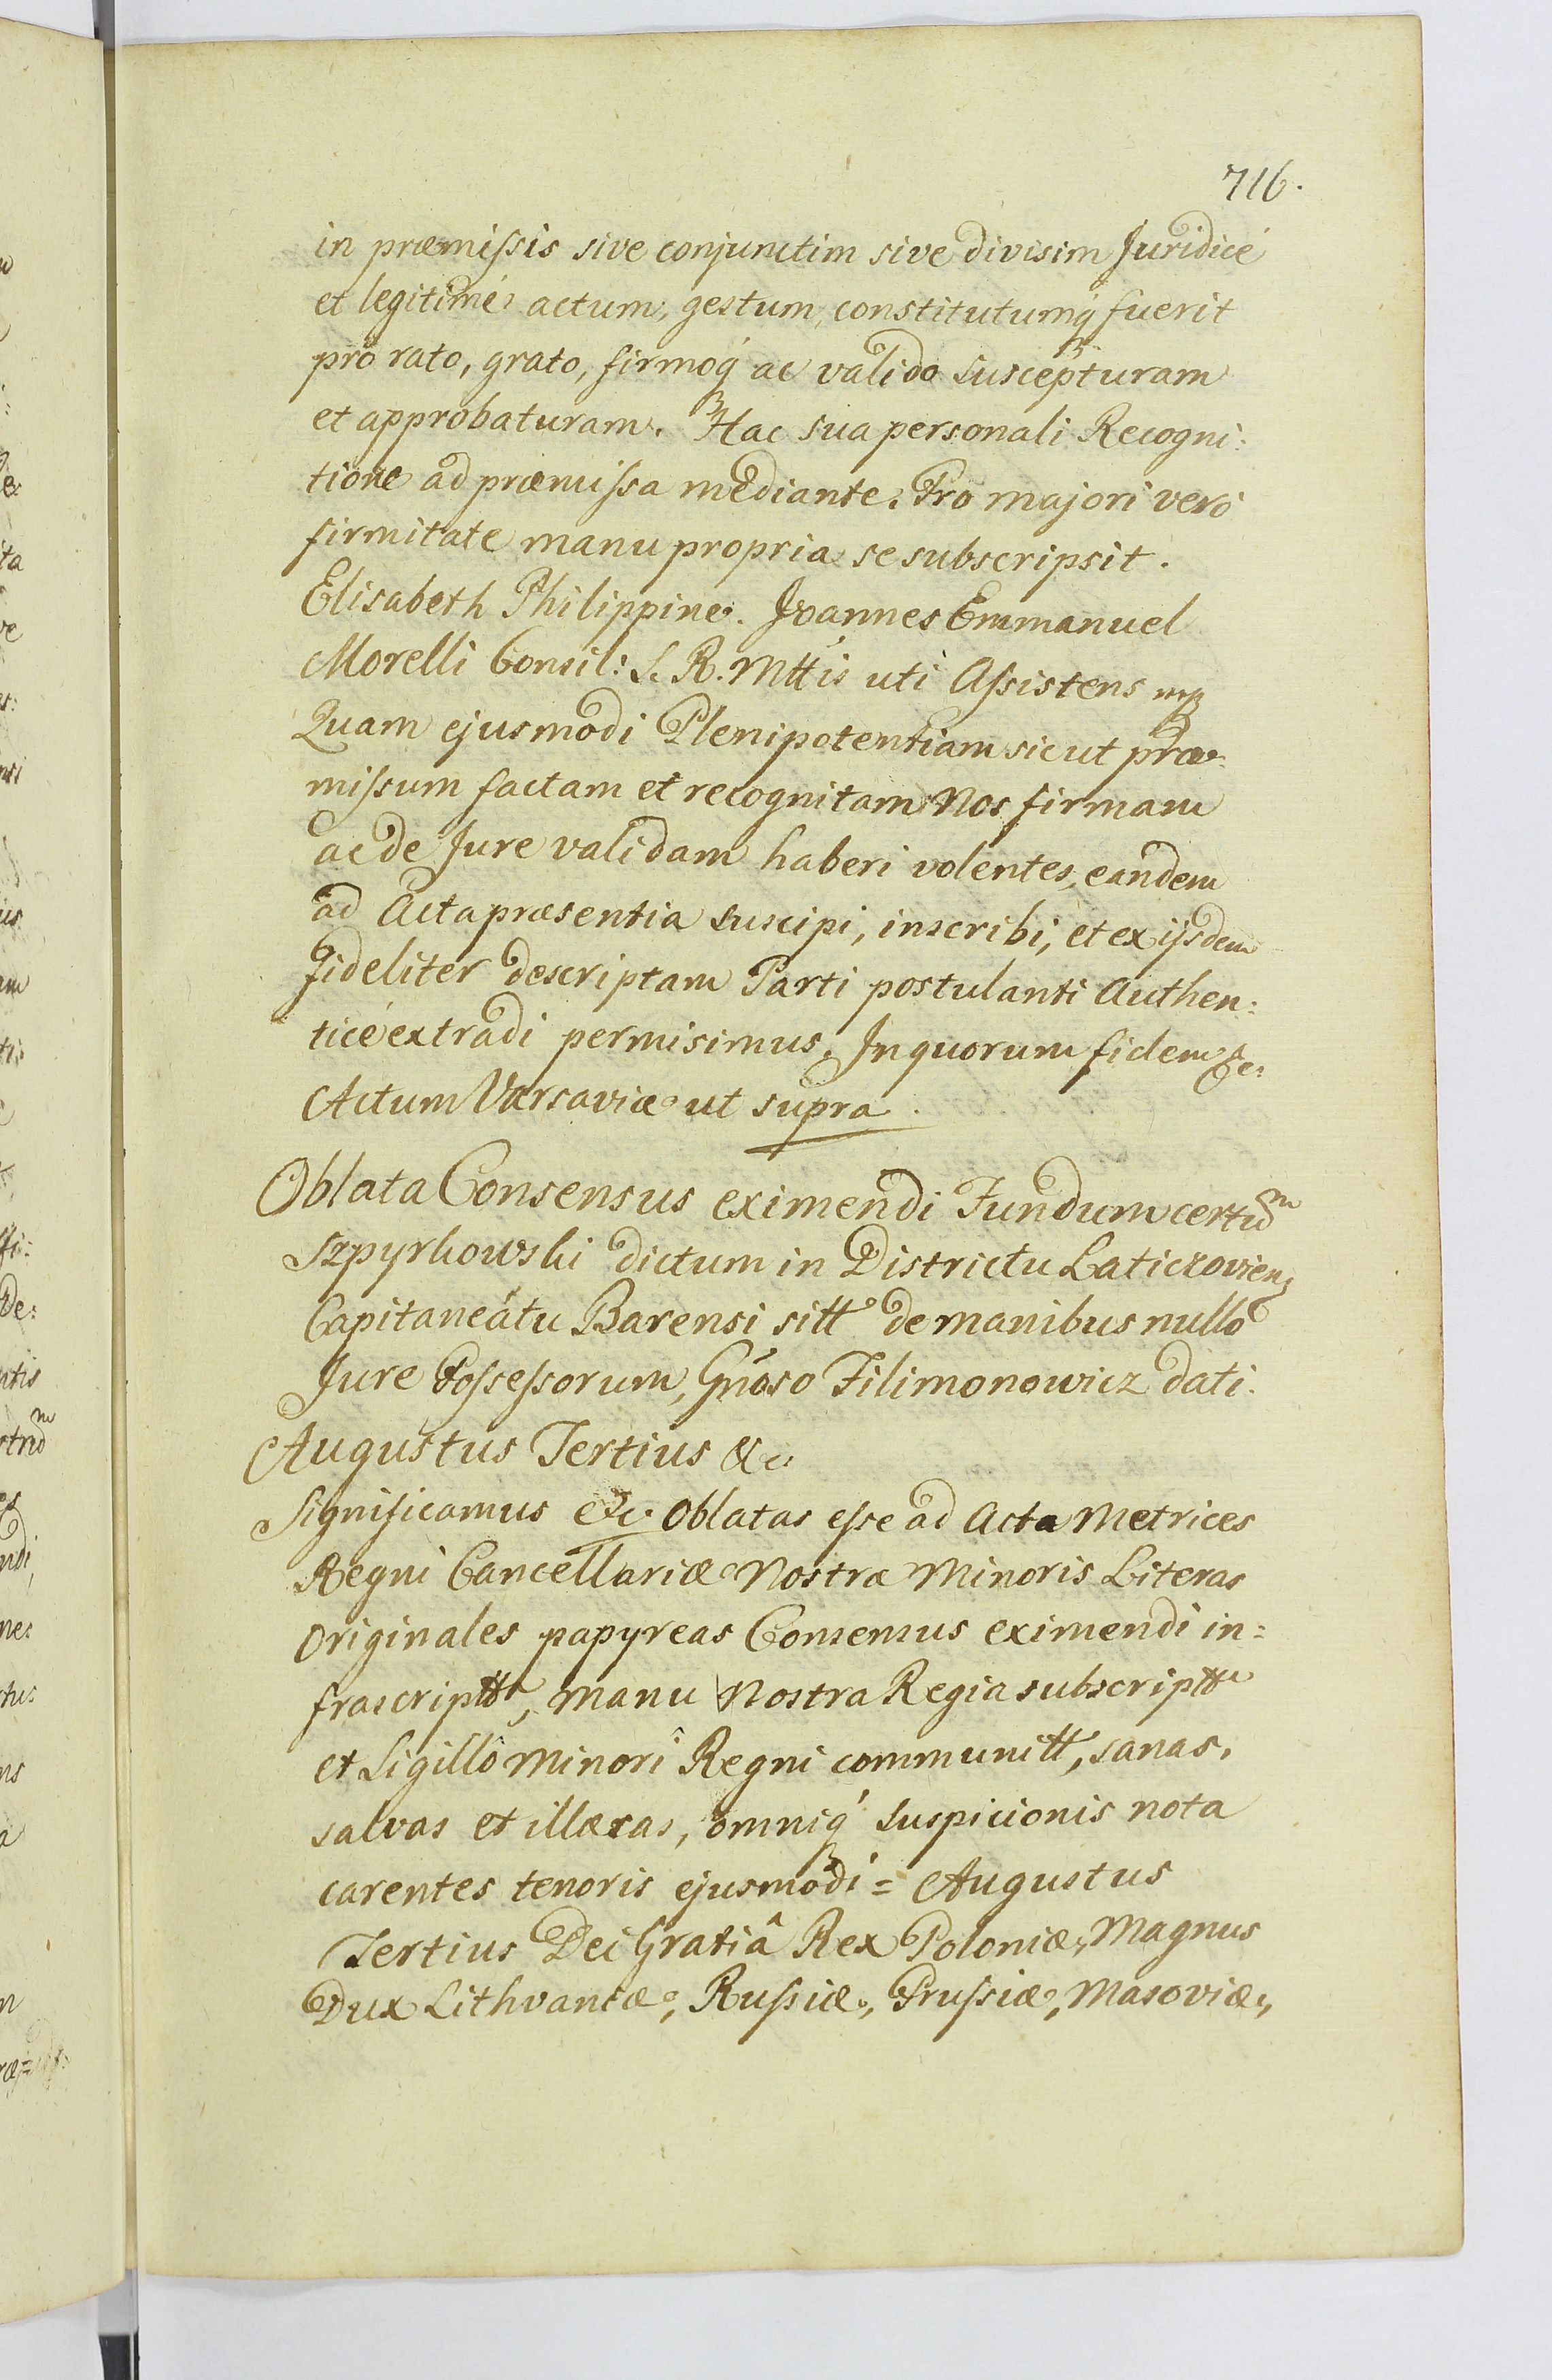 716.
in præmiſsis sive conjunctim sive divisim Juridicé
et legitimé actum, gestum, constitutumq́ fuerit
pro rato, grato, firmoq́ ac valido suscepturam
et approbaturam. Hac sua personali Recogni:
tione ad præmiſsa mediante. Pro majori veró
firmitate manu propria se subscripsit.
Elisabeth Philippine. Joannes Emmanuel
Morelli Consil: S. R. Mttis uti Aſsistens mp
Quam ejusmodi Plenipotentiam sicut præ:
miſsum factam et recognitam Nos firmam
ac de Jure validam haberi volentes, eandem
ad Acta præsentia suscipi, inscribi, et ex ijsdem
fideliter descriptam Parti postulanti Authen:
ticé extradi permisimus. In quorum fidem &c.
Actum Varsaviæ ut supra.
Oblata Consensus eximendi Fundum certum
Szpyrkowski dictum in Districtu Laticzovien,
Capitaneátu Barensi sitt de manibus nullo
Jure Poſseſsorum, Gnoso Filimonowicz dati.
Augustus Tertius &c.
Significamus &c. Oblatas eſse ad Acta Metrices
Regni Cancellariæ Nostræ Minoris Literas
Originales papyreas Consensus eximendi in=
frascriptt, manu Nostra Regia subscriptt
et Sigillô Minori Regni communitt, sanas,
salvas et illæsas, omniq́ suspicionis nota
carentes tenoris ejusmodi = Augustus
Tertius Dei Gratiâ Rex Poloniæ, Magnus
Dux Lithvaniæ, Ruſsiæ, Pruſsiæ, Masoviæ,